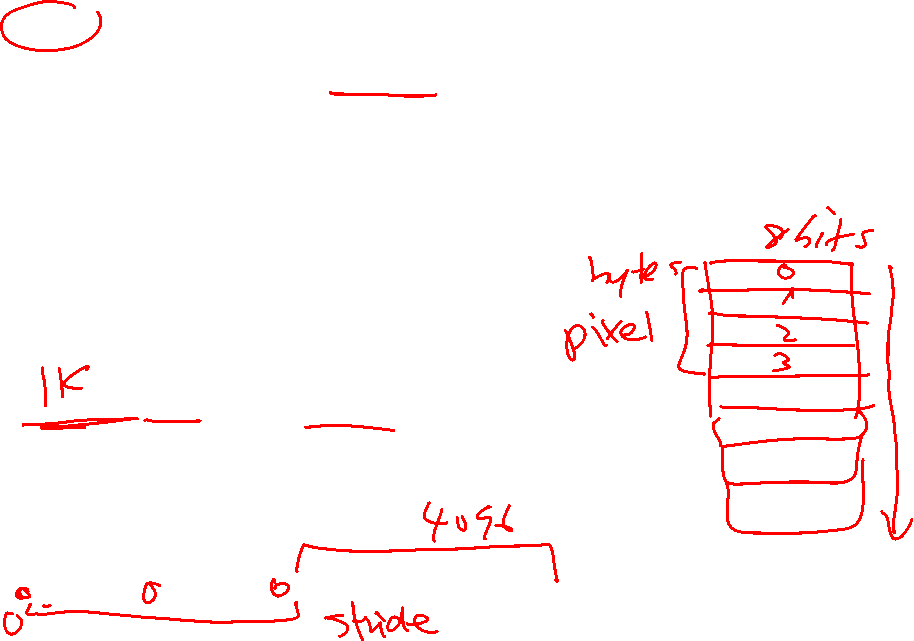 8bits
0
bytes
1
pixel
2
3
1K
4096
0 0 0
0
stride